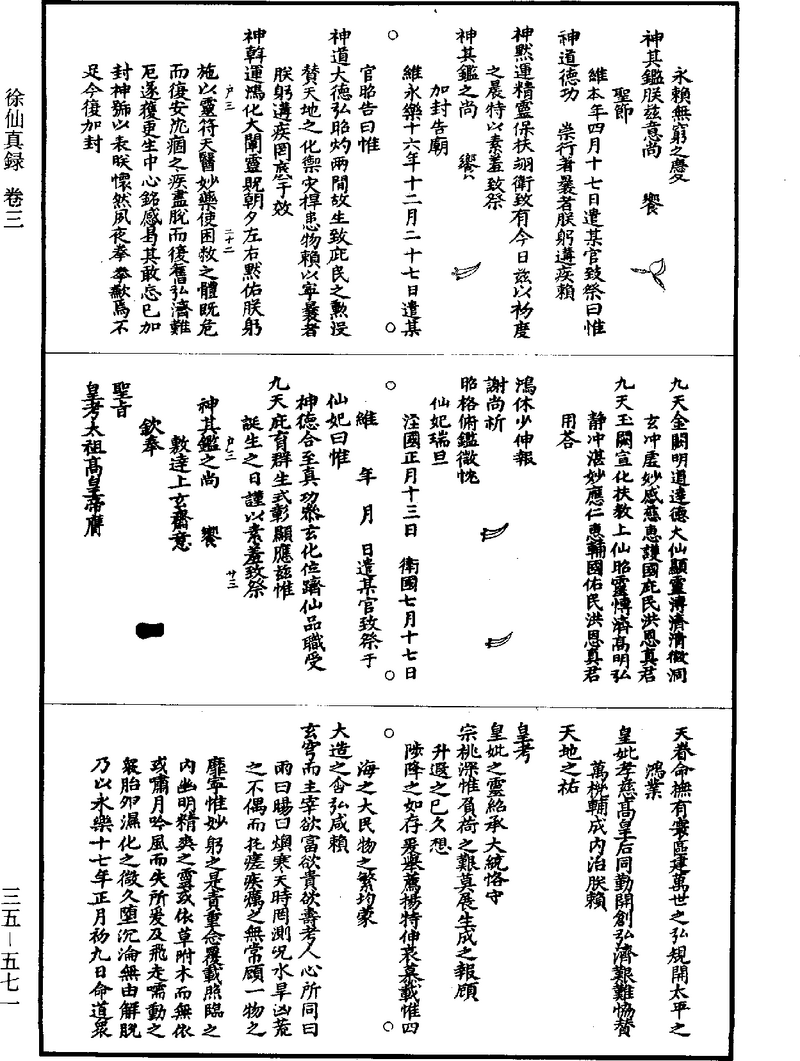 徐仙真録 卷三
三五－五七一
永賴無窮之慶
神其鑑朕兹意尚 饗
聖節
維本年四月十七日遣某官致祭曰惟
神道德功 崇行者曩者朕躬遘疾賴
神黙運精靈保扶翊衛致有今日兹以初度
之晨特以素羞致祭
神其鑑之尚 饗
加封告廟
維永樂十六年十二月二十七日遣某
官昭告曰惟
神道大德弘昭灼兩間故生致庇民之勲沒
賛天地之化禦灾捍患物賴以寧曩者
朕躬遘疾罔底于效
神斡運鴻化大闡靈貺朝夕左右黙佑朕躬
施以靈符天醫妙藥使困敝之體既危
而復安沈痼之疾盡脫而復舊弘濟難
厄遂獲更生中心銘感曷其敢忘已加
封神號以表朕懷然夙夜拳拳歉焉不
足今復加封
九天金闕明道達德大仙顯靈溥濟清微洞
玄冲虛妙感慈惠護國庇民洪恩真君
九天玉闕宣化扶教上仙昭靈博濟高明弘
静冲湛妙應仁惠輔國佑民洪恩真君
用荅
鴻休少伸報
謝尚祈
昭格俯鑑微忱
仙妃瑞旦
泾國正月十三日 衛國七月十七日
維 年 月 日遣某官致祭于
仙妃曰惟
神德合至真功叅玄化位躋仙品職受
九天庇育群生式彰顯應兹惟
誕生之日謹以素羞致祭
神其鑑之尚 饗
敷達上玄齋意
欽奉
聖旨
皇考太祖高皇帝膺
天眷命撫有寰區建萬世之弘規開太平之
鴻業
皇妣孝慈高皇后同勤開創弘濟艱難恊賛
萬㡬輔成内治朕賴
天地之祐
皇考
皇妣之靈紹承大統恪守
宗祧深惟負荷之艱莫展生成之報顧
升遐之已久想
陟降之如存爰舉薦揚特伸哀慕載惟四
海之大民物之繁均蒙
大造之㑹弘咸賴
玄穹而主宰欲富欲貴欲壽考人心所同曰
雨曰暘曰燠寒天時罔測况水旱凶荒
之不偶而扎瘥疾癘之無常顧一物之
靡寧惟妙躬之是責重念覆載照臨之
内幽明精爽之靈或依草附木而無依
或嘯月吟風而失所爰及飛走蠕動之
羣胎夘濕化之微久堕沉淪無由解脫
乃以永樂十七年正月初九日命道衆